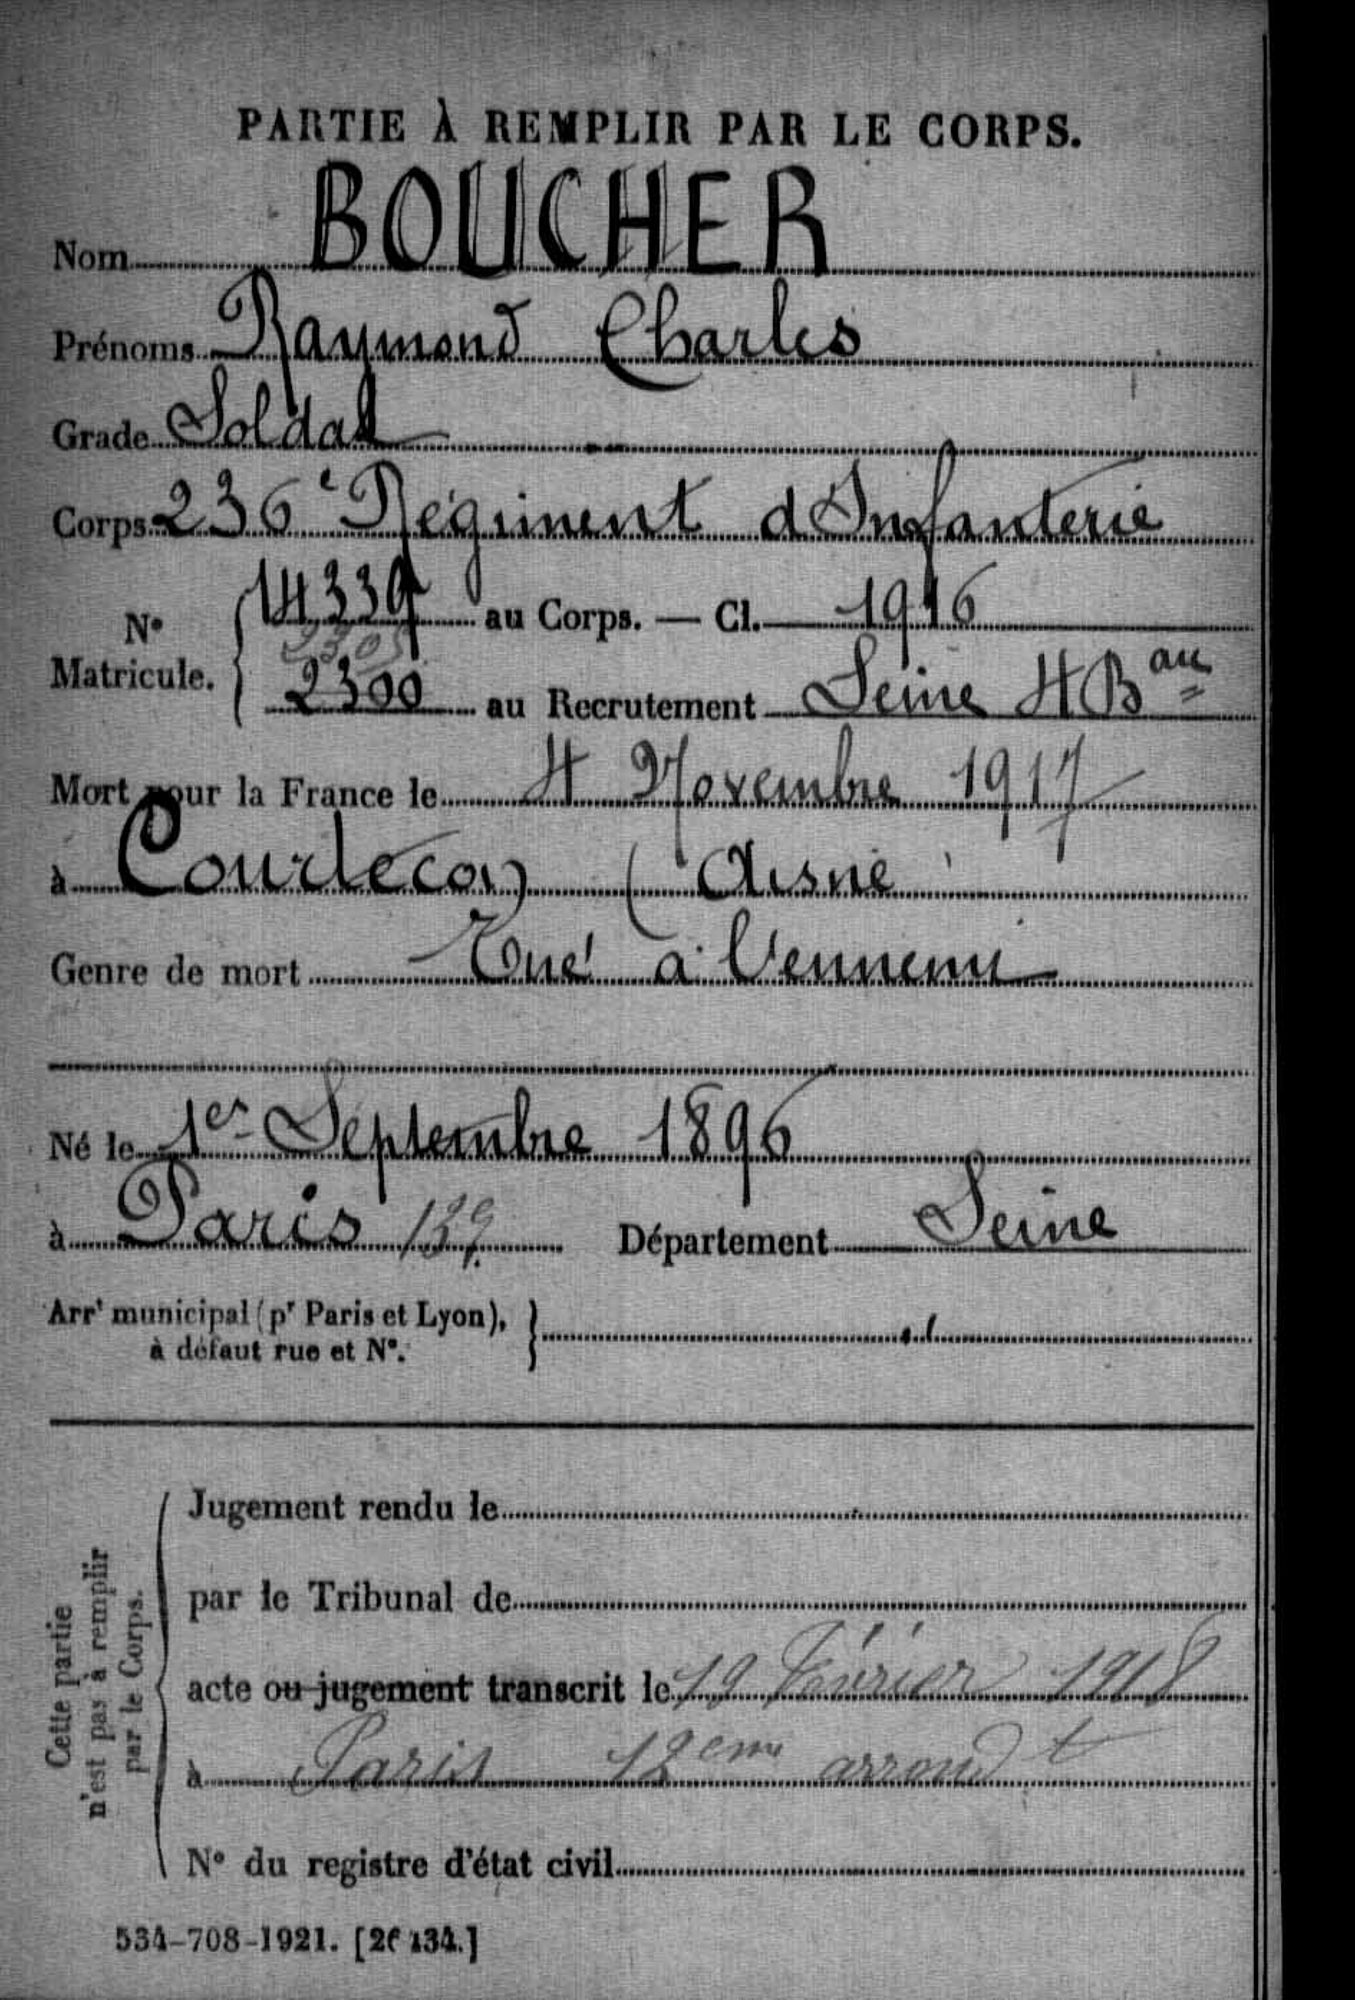 PARTIE À REMPLIR PAR LE CORPS.
Nom BOUCHER
Prénoms Raymond Charles
Grade Soldat
Corps 236e Régiment d'Infanterie
14339 au Corps. — Cl. 1916
N°
Matricule.
2305
2300 au Recrutement Seine 4 Bau
Mort pour la France le 4 Novembre 1917
à Courtecon (Aisne
Genre de mort Tué à l'ennemi
Né le 1er Septembre 1896
à Paris 13e. Département Seine
Arrt municipal (pr Paris et Lyon),
à défaut rue et N°.
Cette partie
n'est pas à remplir
par le Corps.
Jugement rendu le
par le Tribunal de
acte ou jugement transcrit le 19 Février 1918
à Paris 12eme arrondt
N° du registre d'état civil
534-708-1921. [26134.]